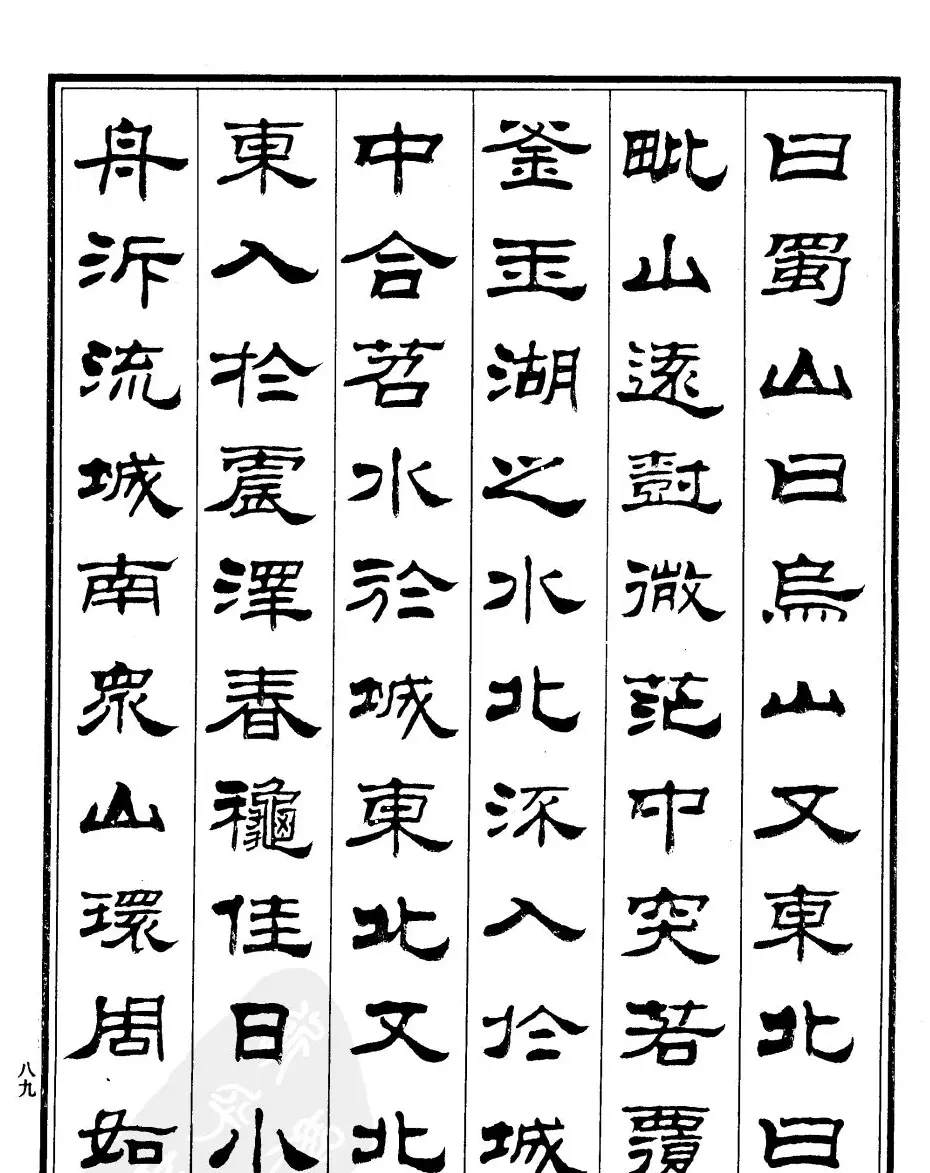 曰蜀山曰烏山又東北曰
毗山遠對微茫中突若覆
釜玉湖之水北流入於城
中合苕水於城東北又北
東入於震澤春龝佳日小
舟泝流城南衆山環周如
八九